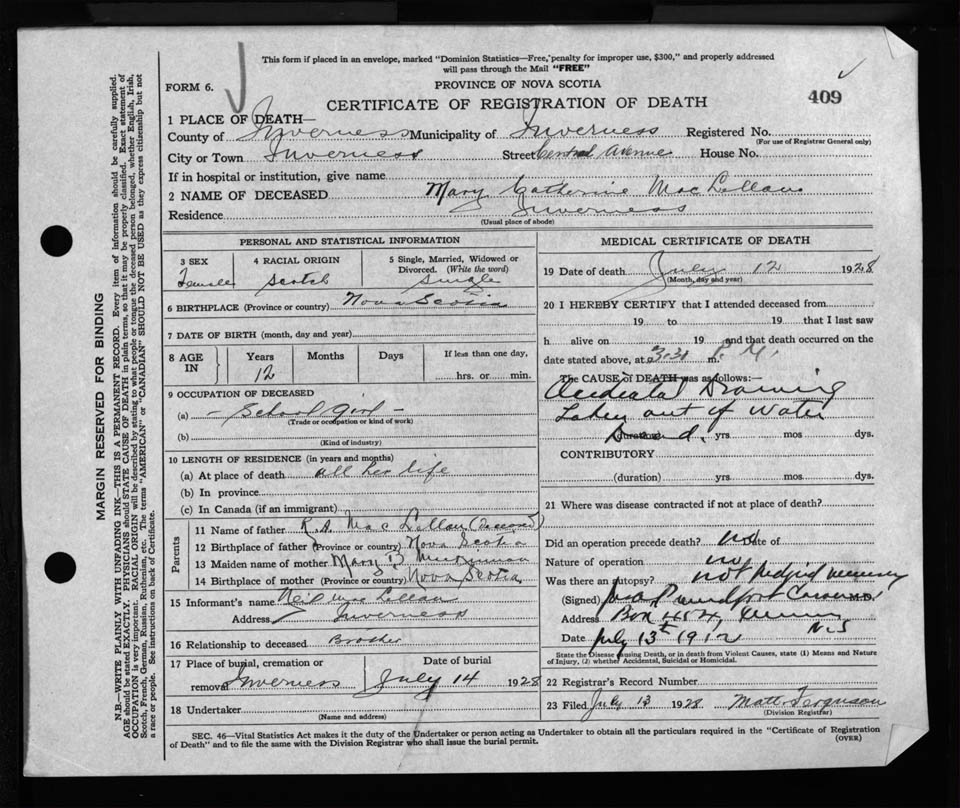 This form if placed in an envelope, marked "Dominion Statistics—Free, penalty for improper use, $300," and properly addressed
will pass through the Mail "FREE"
FORM 6.
PROVINCE OF NOVA SCOTIA
CERTIFICATE OF REGISTRATION OF DEATH
409
1 PLACE OF DEATH—
County of Inverness Municipality of Inverness Registered No.
(For use of Registrar General only)
City or Town Inverness Street Central Avenue House No.
If in hospital or institution, give name
2 NAME OF DECEASED Mary Catherine MacLellan
Residence Inverness
(Usual place of abode)
PERSONAL AND STATISTICAL INFORMATION
3 SEX 4 RACIAL ORIGIN 5 Single, Married, Widowed or
Divorced. (Write the word)
Female Scotch Single
6 BIRTHPLACE (Province or country) Nova Scotia
7 DATE OF BIRTH (month, day and year)
8 AGE IN Years Months Days If less than one day,
12 hrs. or min.
9 OCCUPATION OF DECEASED
(a) - School Girl -
(Trade or occupation or kind of work)
(b)
(Kind of industry)
10 LENGTH OF RESIDENCE (in years and months)
(a) At place of death all her life
(b) In province
(c) In Canada (if an immigrant)
Parents
11 Name of father R.A. MacLellan (Deceased)
12 Birthplace of father (Province or country) Nova Scotia
13 Maiden name of mother Mary
14 Birthplace of mother (Province or country) Nova Scotia
15 Informant's name Neil MacLellan
Address Inverness
16 Relationship to deceased Brother
17 Place of burial, cremation or Date of burial
removal Inverness July 14 1928
18 Undertaker
(Name and address)
MEDICAL CERTIFICATE OF DEATH
19 Date of death July 12 1928
(Month, day and year)
20 I HEREBY CERTIFY that I attended deceased from
19 to 19 that I last saw
h alive on 19 and that death occurred on the
date stated above, at 3.30 P.M. m.
The CAUSE of DEATH was as follows:—
Accidental Drowning
Taken out of water
Dead.
(duration) yrs mos dys.
CONTRIBUTORY
(duration) yrs mos dys.
21 Where was disease contracted if not at place of death?
Did an operation precede death? no Date of
Nature of operation no
Was there an autopsy? not judged necessary
(Signed) M.D.
Address Box N.S.
Date July 13th 1912
State the Disease causing Death, or in death from Violent Causes, state (1) Means and Nature
of Injury, (2) whether Accidental, Suicidal or Homicidal.
22 Registrar's Record Number
23 Filed July 13 1928 Matt. Ferguson
(Division Registrar)
SEC. 46—Vital Statistics Act makes it the duty of the Undertaker or person acting as Undertaker to obtain all the particulars required in the "Certificate of Registration
of Death" and to file the same with the Division Registrar who shall issue the burial permit. (OVER)
MARGIN RESERVED FOR BINDING
N.B.—WRITE PLAINLY WITH UNFADING INK—THIS IS A PERMANENT RECORD. Every item of information should be carefully supplied.
AGE should be stated EXACTLY. PHYSICIANS should STATE CAUSE OF DEATH in plain terms, so that it may be properly classified. Exact statement of
OCCUPATION is very important. RACIAL ORIGIN will be described by stating to what people or tongue the deceased person belonged, whether English, Irish,
Scotch, French, German, Russian, Ruthenian, etc. The terms "AMERICAN" or "CANADIAN" SHOULD NOT BE USED as they express citizenship but not
a race or people. See instructions on back of Certificate.